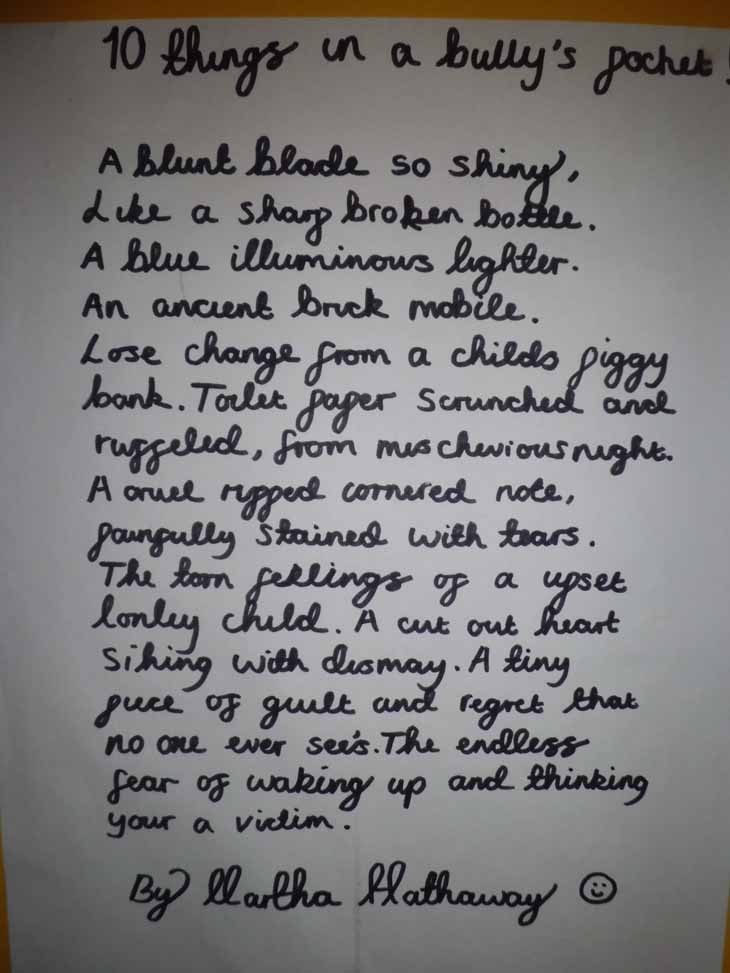 10 things in a bully's pocket!
A blunt blade so shiny,
Like a sharp broken bottle.
A blue illuminous lighter.
An ancient brick mobile.
Lose change from a childs piggy
bank. Toilet paper scrunched and
ruggeled, from mischevious night.
A cruel ripped cornered note,
painfully stained with tears.
The torn feellings of a upset
lonley child. A cut out heart
Siking with dismay. A tiny
piece of guilt and regret that
no one ever see's. The endless
fear of waking up and thinking
your a victim.
By Martha Hathaway ☺